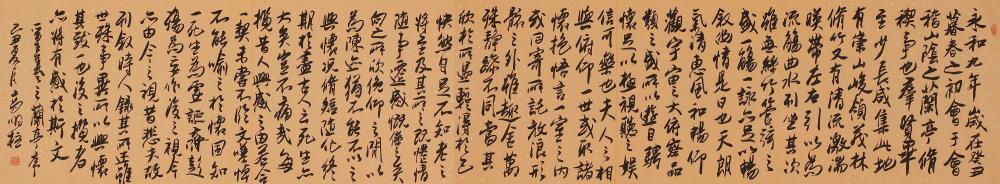 永和九年歲在癸丑
暮春之初會于會
稽山陰之蘭亭脩
禊事也群賢畢
至少長咸集此地
有崇山峻領茂林
脩竹又有清流激湍
暎帶左右引以為
流觴曲水列坐其次
雖無絲竹管弦之
盛一觴一詠亦足以暢
敘幽情是日也天朗
氣清惠風和暢仰
觀宇宙之大俯察品
類之盛所以遊目騁
懷足以極視聽之娛
信可樂也夫人之相
與俯仰一世或取諸
懷抱悟言一室之內
或因寄所託放浪形
骸之外雖趣舍萬
殊靜躁不同當其
欣於所遇暫得於己
快然自足不知老之
將至及其所之既惓情
隨事遷感慨係之矣
向之所欣俛仰之間以
為陳迹猶不能不以之
興懷況脩短隨化終
期於盡古人云死生亦
大矣豈不痛哉每
攬昔人興感之由若合
一契未嘗不臨文嗟悼
不能喻之於懷固知
一死生為虛誕齊彭
殤為妄作後之視今
亦由今之視昔悲夫故
列敘時人錄其所述雖
世殊事異所以興懷
其致一也後之攬者
亦將有感於斯文
王羲之蘭亭序